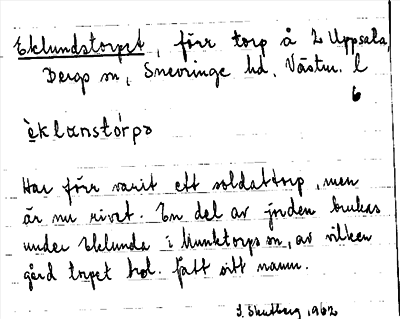 Eklundstorpet, förr torp å L Uppsala,
Bergs sn, Snevringe hd. Västm. l
6
èklanstórpə
Har förr varit ett soldattorp, men
är nu rivet. En del av jorden brukas
under Eklunda i Munktorps sn, av vilken
gård torpet fått sitt namn.
1962